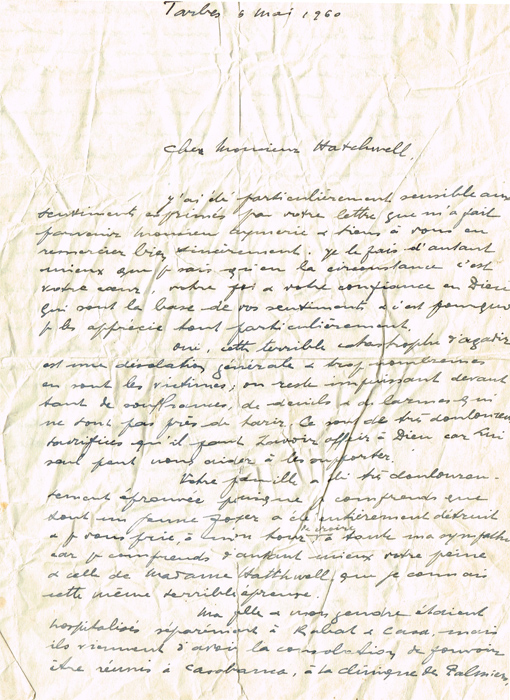 Tarbes 6 mai 1960
Cher Monsieur Hatchwell,
J'ai été particulièrement sensible aux
sentiments exprimés par votre lettre que m'a fait
parvenir Monsieur Aymerie & tiens à vous en
remercier bien sincèrement. Je le fais d'autant
mieux que je sais qu'en la circonstance c'est
votre cœur, votre foi & votre confiance en Dieu
qui sont la base de vos sentiments & c'est pourquoi
je les apprécie tout particulièrement.
Oui, cette terrible catastrophe d'Agadir
est une désolation générale & trop nombreuses
en sont les victimes; on reste impuissant devant
tant de souffrances, de deuils & de larmes qui
ne sont pas près de tarir. Ce sont de très douloureux
sacrifices qu'il faut savoir offrir à Dieu car Lui
seul peut nous aider à les supporter.
Votre famille a été très douloureu-
sement éprouvée puisque je comprends que
tout un jeune foyer a été entièrement détruit
& je vous prie, à mon tour, de croire à toute ma sympathie
car je comprends d'autant mieux votre peine
& celle de Madame Hatchwell, que je connais
cette même terrible épreuve.
Ma fille & mon gendre étaient
hospitalisés séparément à Rabat & Casa, mais
ils viennent d'avoir la consolation de pouvoir
être réunis à Casablanca, à la clinique des Palmiers,